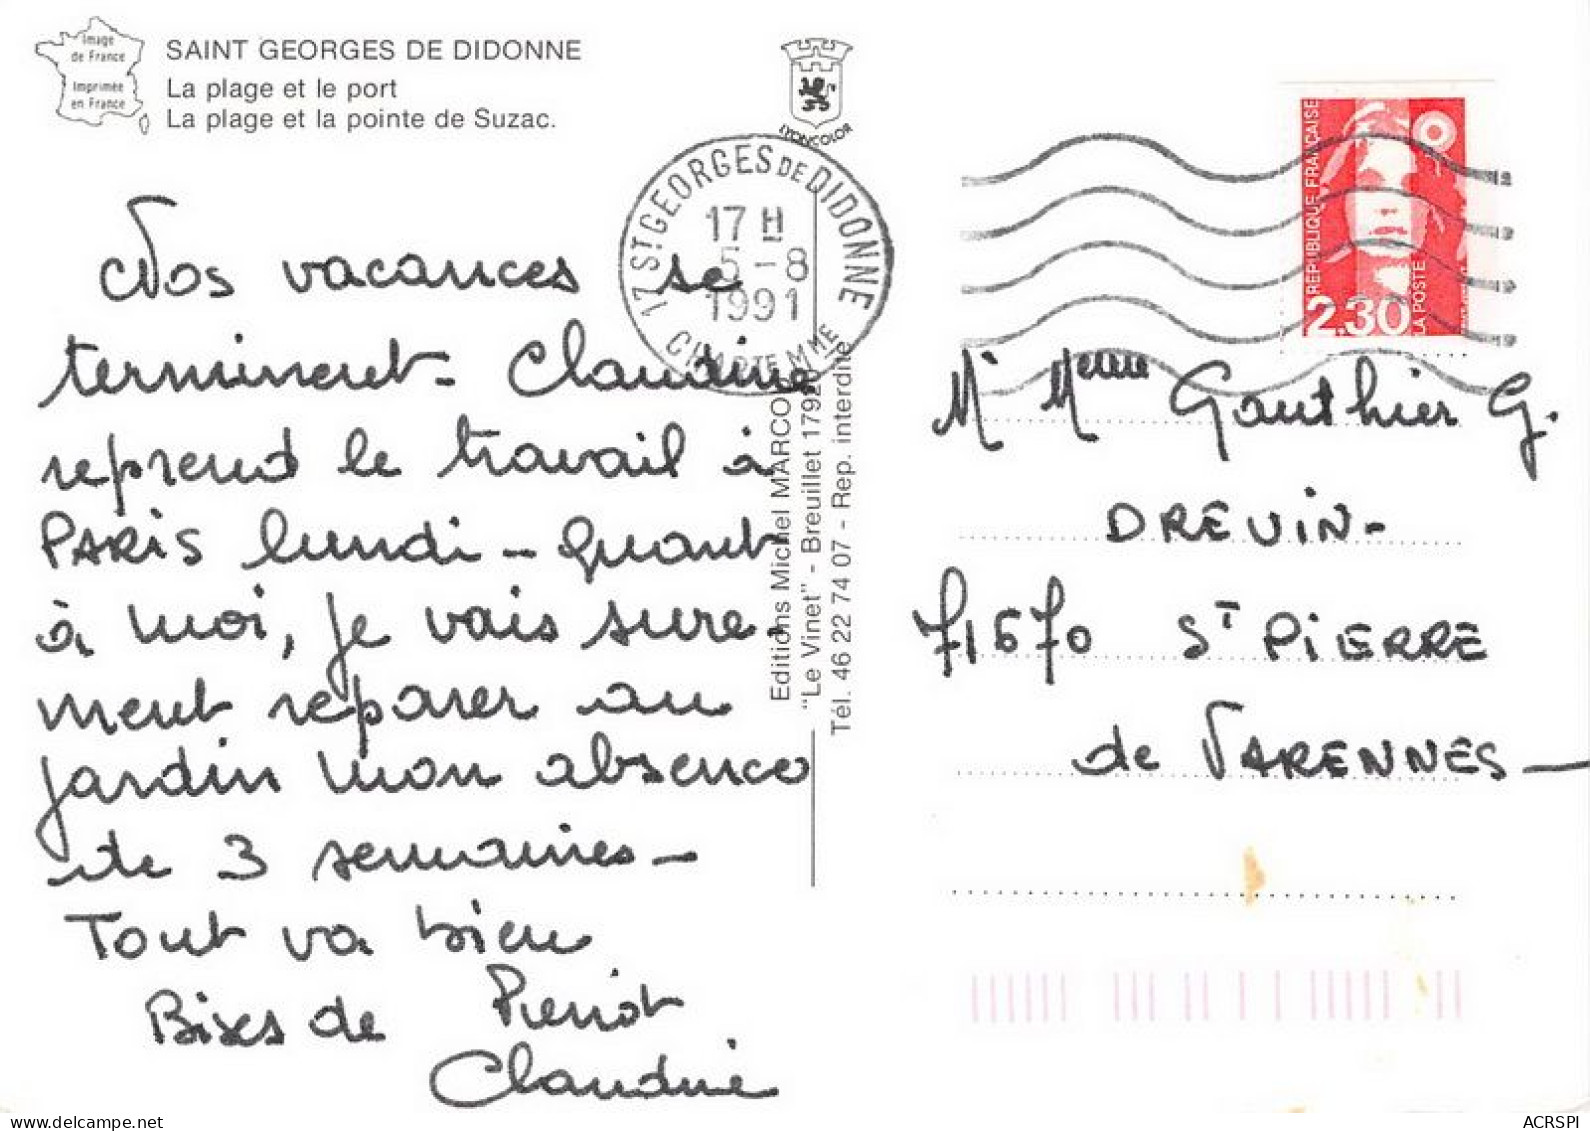 Image
de France
Imprimée
en France
SAINT GEORGES DE DIDONNE
La plage et le port
La plage et la pointe de Suzac.
LYONCOLOR
17 ST GEORGES DE DIDONNE
17 H
5 - 8
1991
CHARTE MME
RÉPUBLIQUE FRANÇAISE
LA POSTE
2,30
Nos vacances se
terminent - Claudine
reprend le travail à
PARIS lundi - Quant
à moi, je vais sure-
ment reparer au
jardin mon absence
de 3 semaines -
Tout va bien
Bises de Pierrot
Claudine
Editions Michel MARCOU
"Le Vinet" - Breuillet 17920
Tél. 46 22 74 07 - Rep. interdite
Mr Meme Gauthier G.
DREVIN -
71670 ST PIERRE
de VARENNES -
delcampe.net
ACRSPI